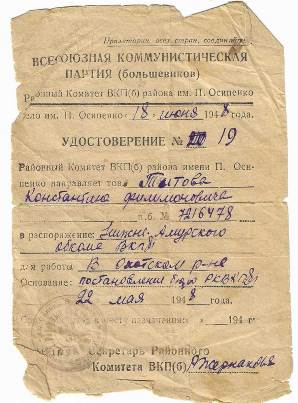 Пролетарии всех стран, соединяйтесь
ВСЕСОЮЗНАЯ КОММУНИСТИЧЕСКАЯ
ПАРТИЯ (большевиков)
Районный Комитет ВКП(б) района им. П. Осипенко
село им. П. Осипенко 18 июня 1948 года.
УДОСТОВЕРЕНИЕ № 19
Районный Комитет ВКП(б) района имени П. Оси-
пенко направляет тов Титова
Константина Филимоновича
п.б. № 7216478
в распоряжение Нижне-Амурского
обкома ВКПб
для работы В Охотском р-не
Основание: постановление РКВКП(б)
22 мая 1948 года.
к месту назначения: 194 г.
Секретарь Районного
Комитета ВКП(б)